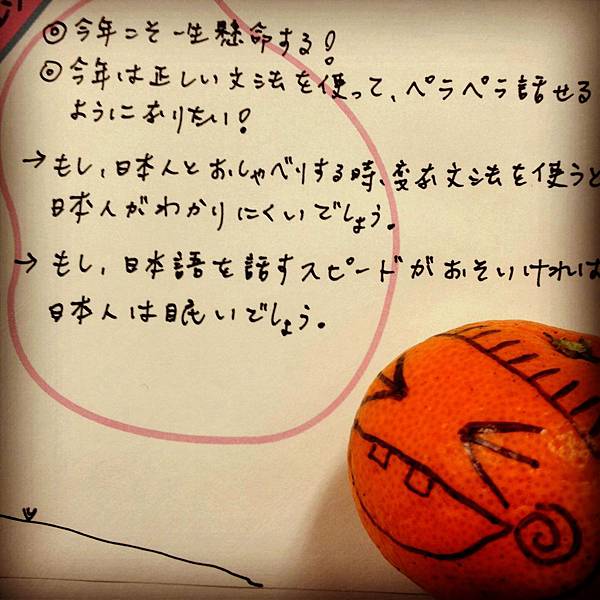 ◎今年こそ一生懸命する!
◎今年は正しい文法を使って、ペラペラ話せる
ようになりたい!
→もし、日本人とおしゃべりする時、変な文法を使うと
日本人がわかりにくいでしょう。
→もし、日本語を話すスピードがおそいければ
日本人は眠いでしょう。